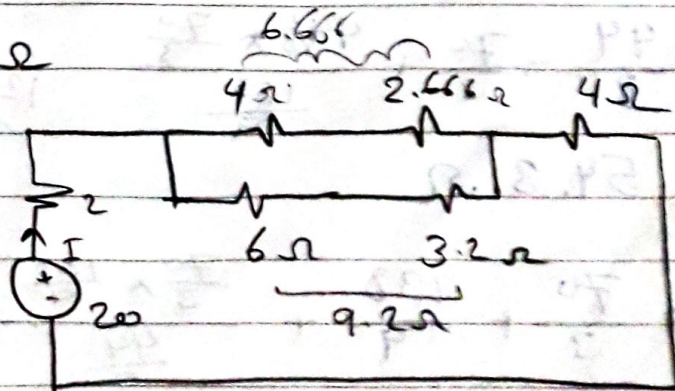 Ω
6.666
4Ω 2.666Ω 4Ω
2
I
+
-
20
6Ω 3.2Ω
9.2Ω